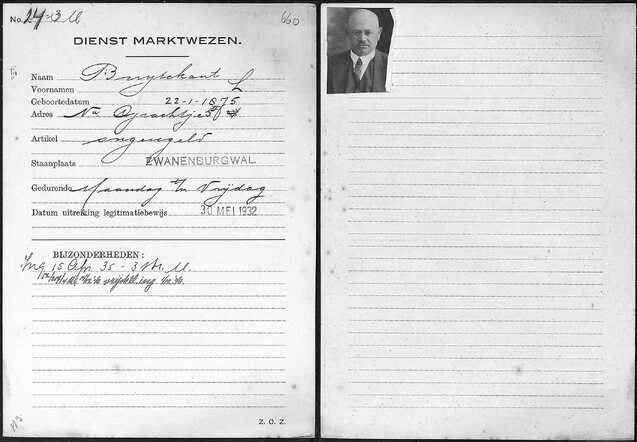 No. 24-3 M 660
DIENST MARKTWEZEN.
Naam Buytekant
Voornamen L
Geboortedatum 22-1-1875.
Adres Nw Grachtje
Artikel ongeregeld
Staanplaats ZWANENBURGWAL
Gedurende Maandag t/m Vrijdag
Datum uitreiking legitimatiebewijs 30 MEI 1932
BIJZONDERHEDEN:
Ing 15 Apr. 35 - 3 M.
Z. O. Z.